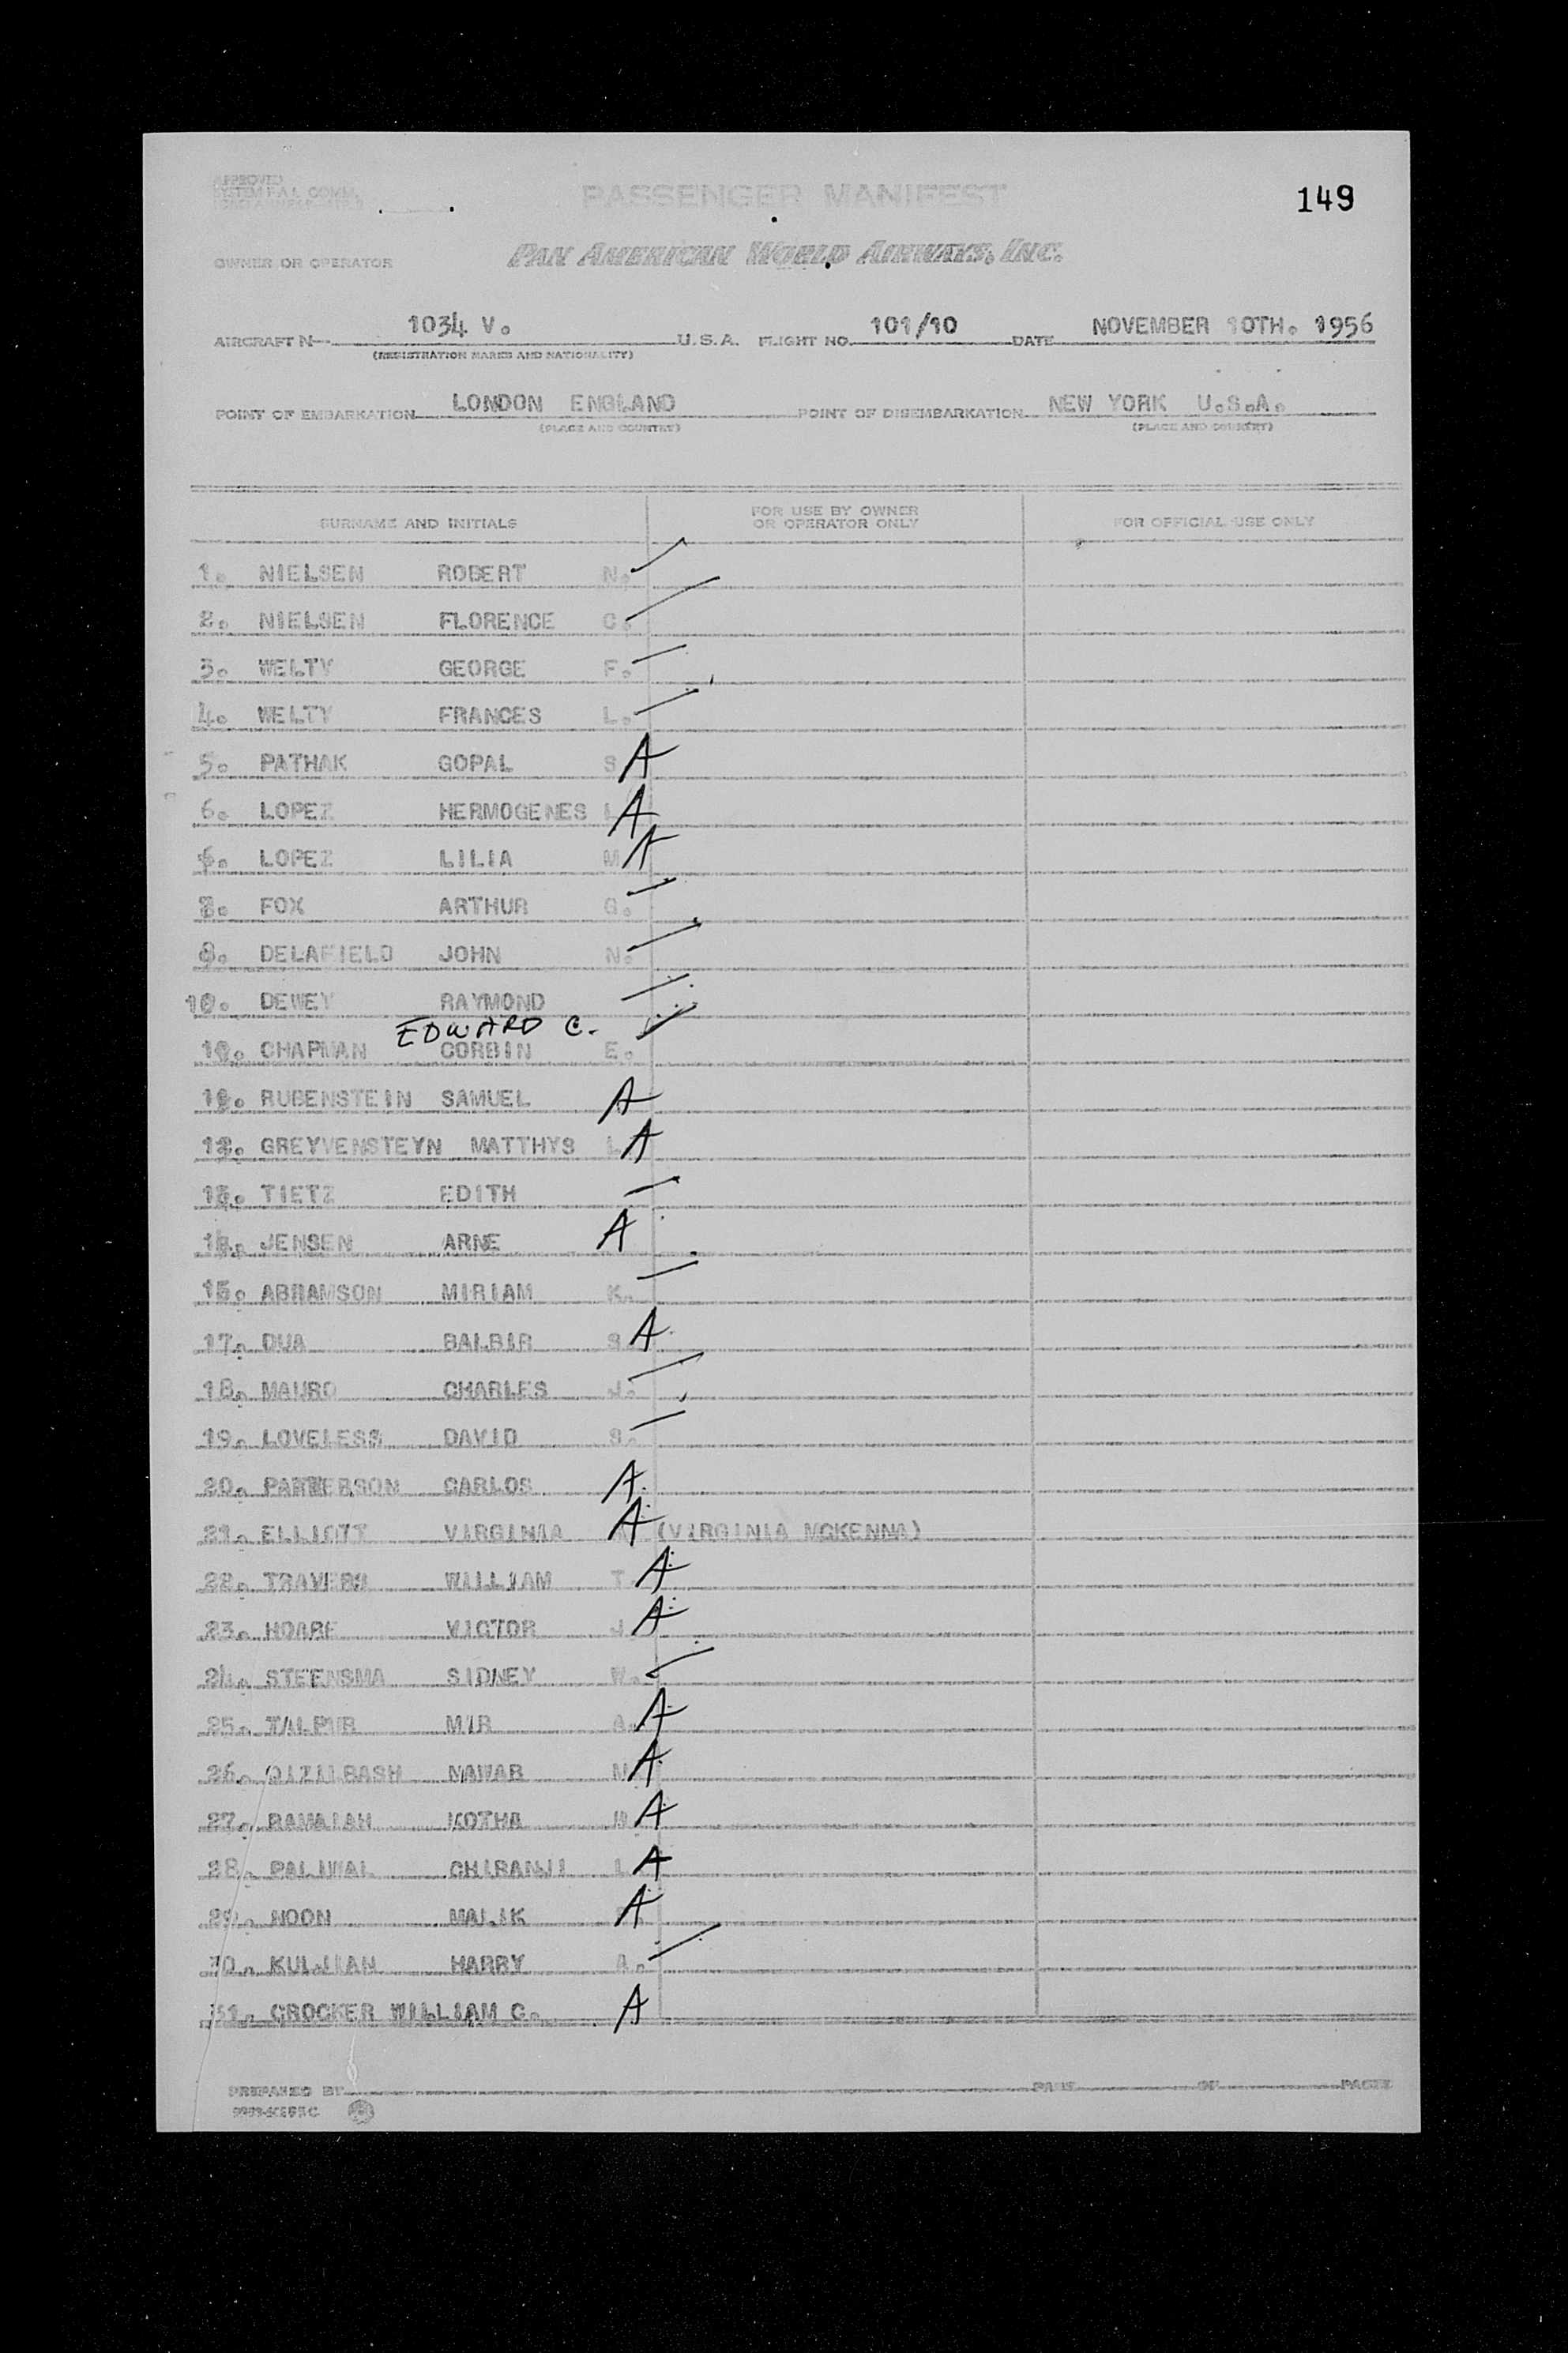 APPROVED
PASSENGER MANIFEST
149
OWNER OR OPERATOR PAN AMERICAN WORLD AIRWAYS, INC.
AIRCRAFT N- 1034 V. U.S.A. FLIGHT NO. 101/10 DATE NOVEMBER 10TH. 1956
(REGISTRATION MARKS AND NATIONALITY)
POINT OF EMBARKATION LONDON ENGLAND POINT OF DISEMBARKATION NEW YORK U.S.A.
(PLACE AND COUNTRY) (PLACE AND COUNTRY)
SURNAME AND INITIALS FOR USE BY OWNER OR OPERATOR ONLY FOR OFFICIAL USE ONLY
1. NIELSEN ROBERT N.
2. NIELSEN FLORENCE C.
3. WELTY GEORGE F.
4. WELTY FRANCES L.
5. PATHAK GOPAL S A
6. LOPEZ HERMOGENES L A
LOPEZ LILIA M A
FOX ARTHUR G.
DELAFIELD JOHN N.
10. DEWEY RAYMOND
EDWARD C.
CHAPMAN CORBIN E.
RUBENSTEIN SAMUEL A
GREYVENSTEYN MATTHYS L A
TIETZ EDITH
JENSEN ARNE A
ABRAMSON MIRIAM K.
17. DUA BALBIR S A
18. MAURO CHARLES J.
19. LOVELESS DAVID S.
20. PATTERSON CARLOS A
21. ELLIOTT VIRGINIA A (VIRGINIA MCKENNA)
22. TRAVERS WILLIAM T. A
23. HOARE VICTOR J A
24. STEENSMA SIDNEY W.
25. TALPUR MIR A. A
26. QIZILBASH NAWAB N A
27. RAMAIAH KOTHA A
28. PALIWAL CHIRANJI L A
29. NOON MALIK A
30. KULJIAN HARRY A.
31. CROCKER WILLIAM C. A
PREPARED BY PAGE OF PAGES